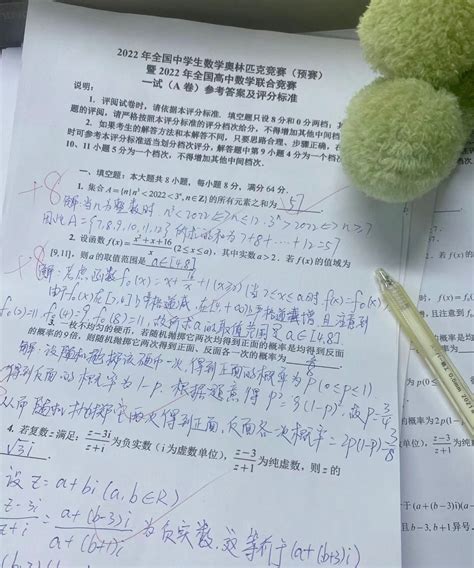 2022 年全国中学生数学奥林匹克竞赛（预赛）
暨 2022 年全国高中数学联合竞赛
一试（A 卷）参考答案及评分标准
说明：
1. 评阅试卷时，请依据本评分标准. 填空题只设 8 分和 0 分两档；其
题的评阅，请严格按照本评分标准的评分档次给分，不得增加其他中间档
2. 如果考生的解答方法和本解答不同，只要思路合理、步骤正确，在
时可参考本评分标准适当划分档次评分，解答题中第 9 小题 4 分为一个档
10、11 小题 5 分为一个档次，不得增加其他中间档次.
一、填空题：本大题共 8 小题，每小题 8 分，满分 64 分.
+8
1. 集合 A={n|n³<2022<3ⁿ,n∈Z} 的所有元素之和为 57
解:当n为整数时, n³<2022⇔n≤12. 3ⁿ>2022⇔n≥7
因此A={7,8,9,10,11,12}, 所求的和为7+8+…+12=57
2. 设函数 f(x)=(x²+x+16)/x (2≤x≤a)，其中实数 a>2. 若 f(x) 的值域为
+8
[9,11]，则 a 的取值范围是 a∈[4,8]
解:考虑函数f₀(x)=x+16/x+1(x≥2)(当2≤x≤a时 f(x)=f₀(x)),
由于f₀(x)在[2,4]上严格递减,在[4,+∞)严格递增,且注意到
f₀(2)=11, f₀(4)=9, f₀(8)=11, 故所求a的取值范围是 a∈[4,8]
3. 一枚不均匀的硬币，若随机抛掷它两次均得到正面的概率是均得到反面
的概率的 9倍，则随机抛掷它两次得到正面、反面各一次的概率为 3/8
解: 设随机抛掷该硬币一次,得到正面的概率为 p(0≤p≤1)
得到反面的概率为1-p. 根据题意,得 p²=9(1-p)², 故p=3/4
从而随机抛掷它两次得到正面,反面各一次概率=2p(1-p)=3/8
4. 若复数 z 满足：(z-3i)/(z+1) 为负实数（i 为虚数单位），(z-3)/(z+1) 为纯虚数，则 z 的
√3i
设 z=a+bi (a,b∈R)
(z-3i)/(z+i)=(a+(b-3)i)/(a+(b+1)i) 为负实数,
(a+(b+3)i)
2. 若 f(x) 的
时，f(x)=f
增，且注意到 f
概率是均得
为 p(0≤
概率为 2p(1
单位)，(z-3)/(z+1) 为纯
于(a+(b-3)i)(a-
且 b-3, b+1 异号，